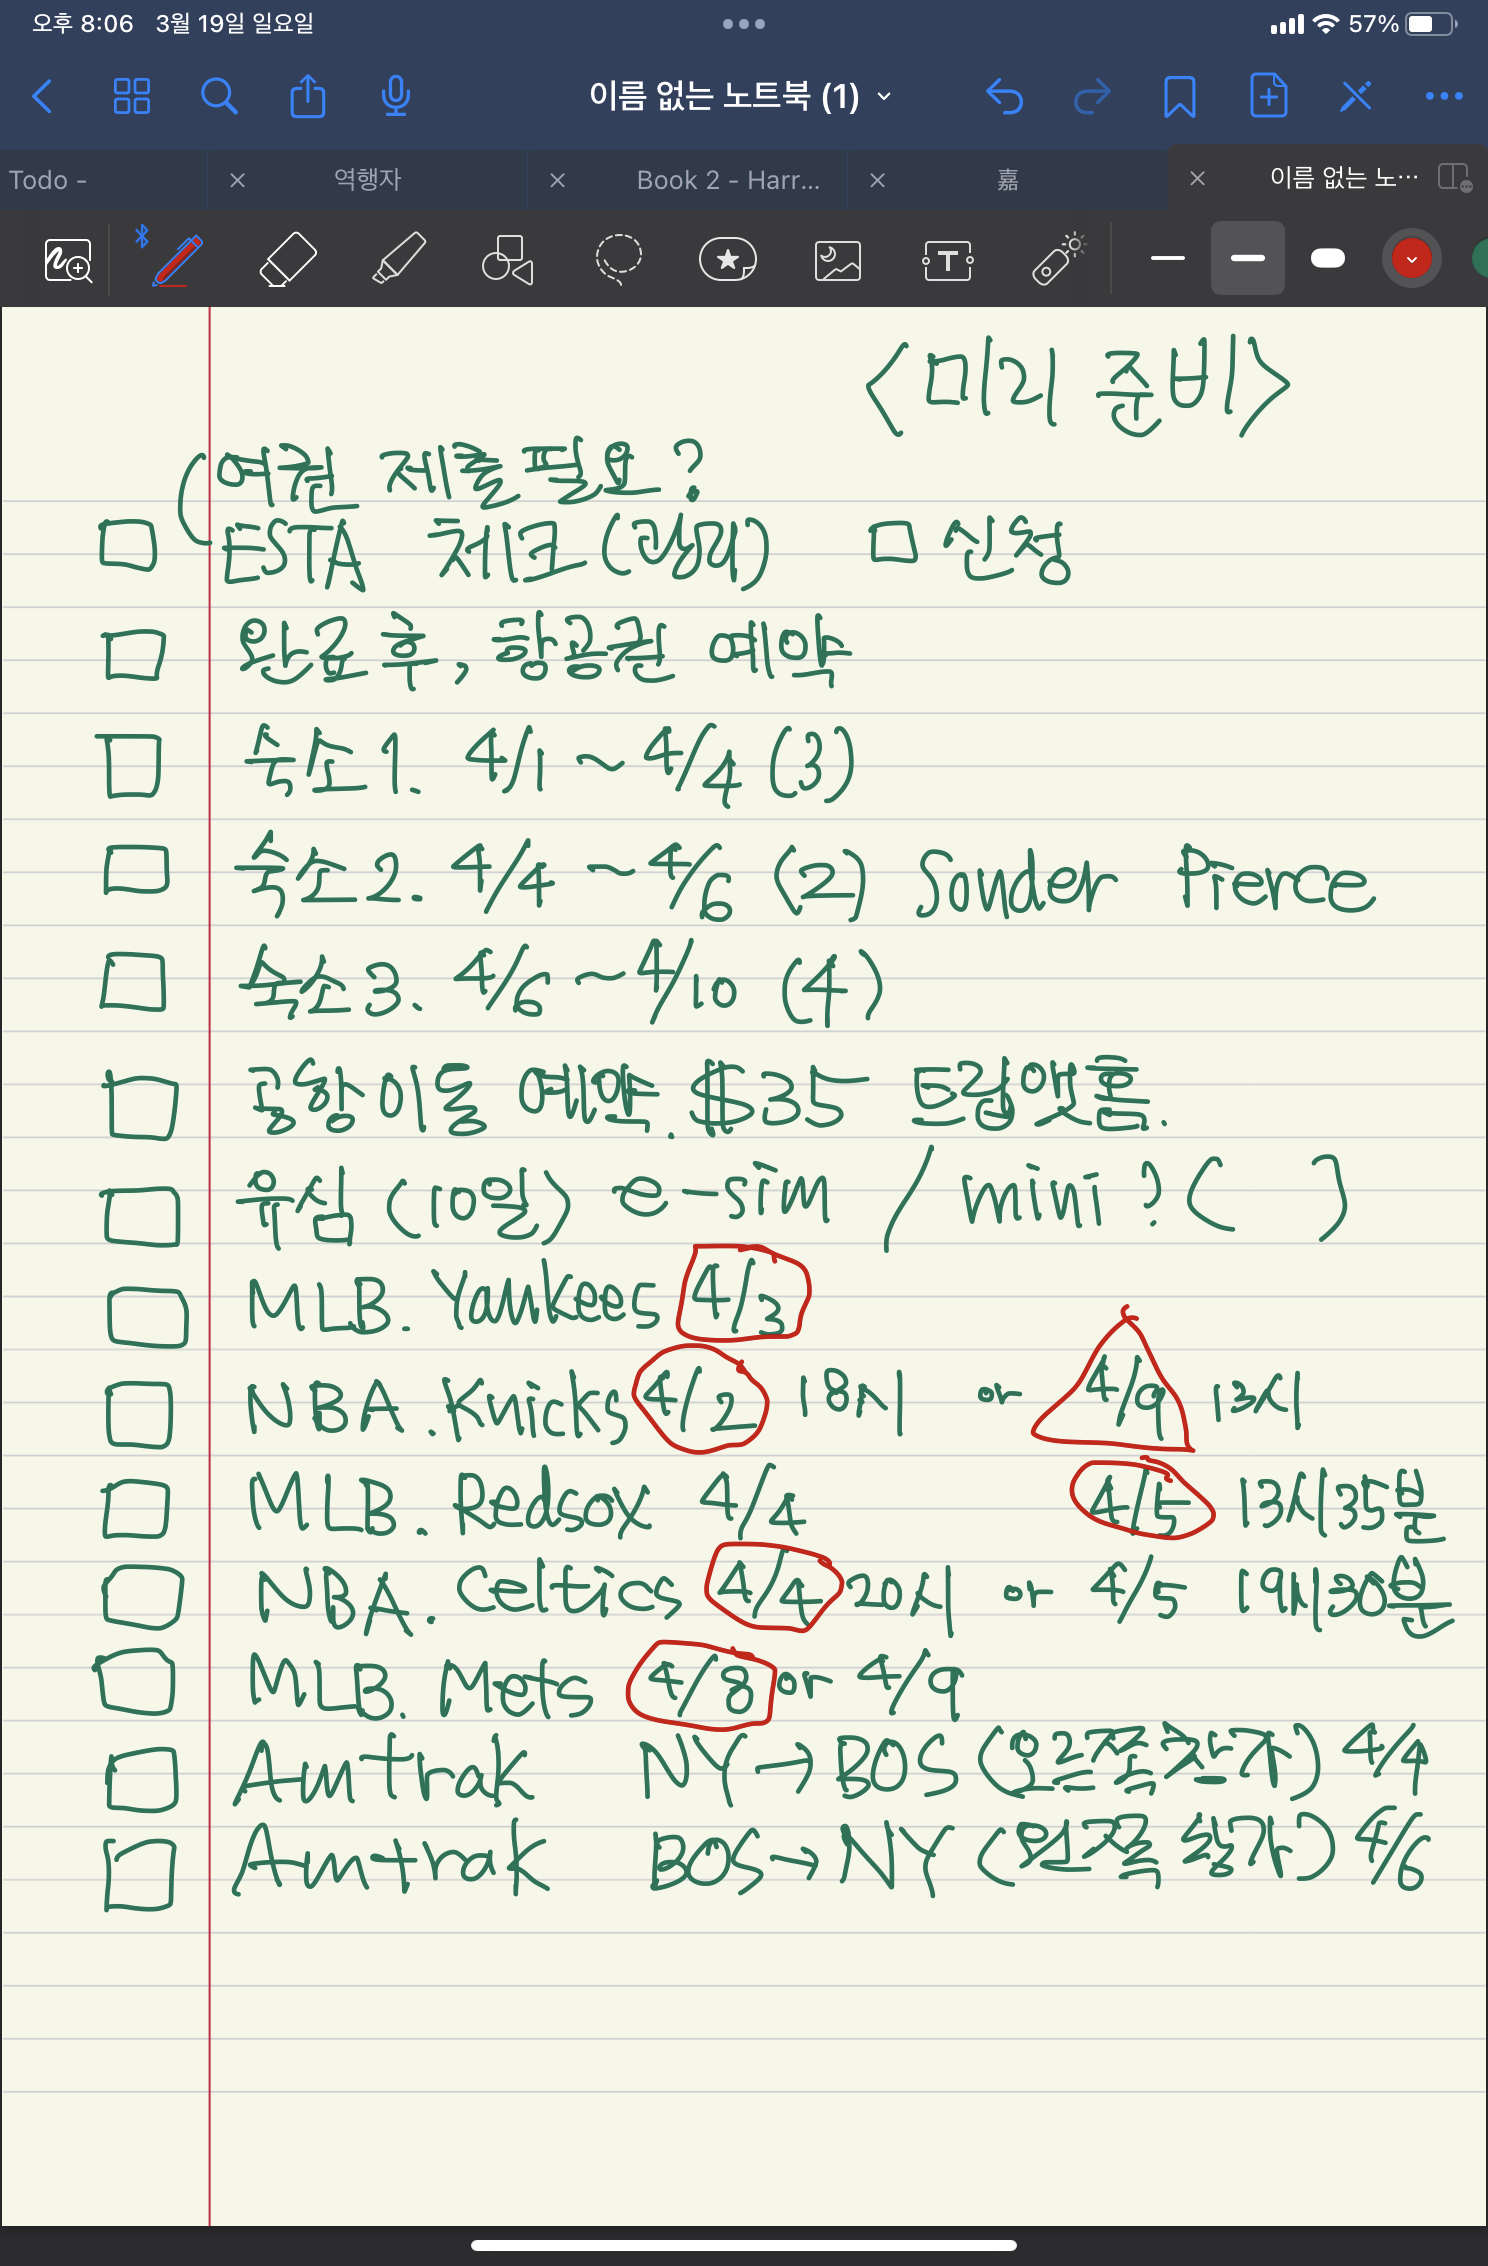 오후 8:06 3월 19일 일요일 57%
이름 없는 노트북 (1)
Todo - 역행자 Book 2 - Harr... 嘉 이름 없는 노...
<미리 준비>
여권 제출필요?
ESTA 체크 (괌리) □ 신청
완료 후, 항공권 예약
숙소1. 4/1 ~ 4/4 (3)
숙소2. 4/4 ~ 4/6 (2) Sonder Pierce
숙소3. 4/6 ~ 4/10 (4)
공항이동 예약. $35 트립앳홈.
유심 (10일) e-sim / mini? ( )
MLB. Yankees 4/3
NBA. Knicks 4/2 18시 or 4/9 13시
MLB. Redsox 4/4 4/5 13시35분
NBA. Celtics 4/4 20시 or 4/5 19시30분
MLB. Mets 4/8 or 4/9
Amtrak NY→BOS (오른쪽창가) 4/4
Amtrak BOS→NY (왼쪽 창가) 4/6